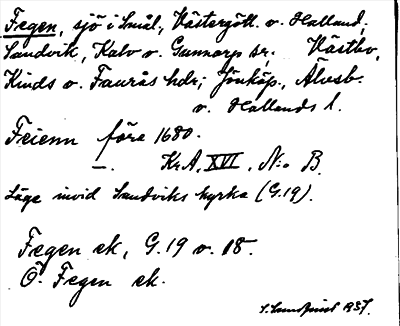 Fegen, sjö i Smål., Västergötl. o. Halland;
Sandvik, Kalv o. Gunnarp sr. Västbo,
Kinds o. Faurås hdr; Jönköp., Älvsb.
o. Hallands l.
Feienn före 1680.
—. Kr.A. XVI. N:o B.
Läge invid Sandviks kyrka (G.19).
Fegen ek, G.19 o. 18.
Ö. Fegen ek.
1937.